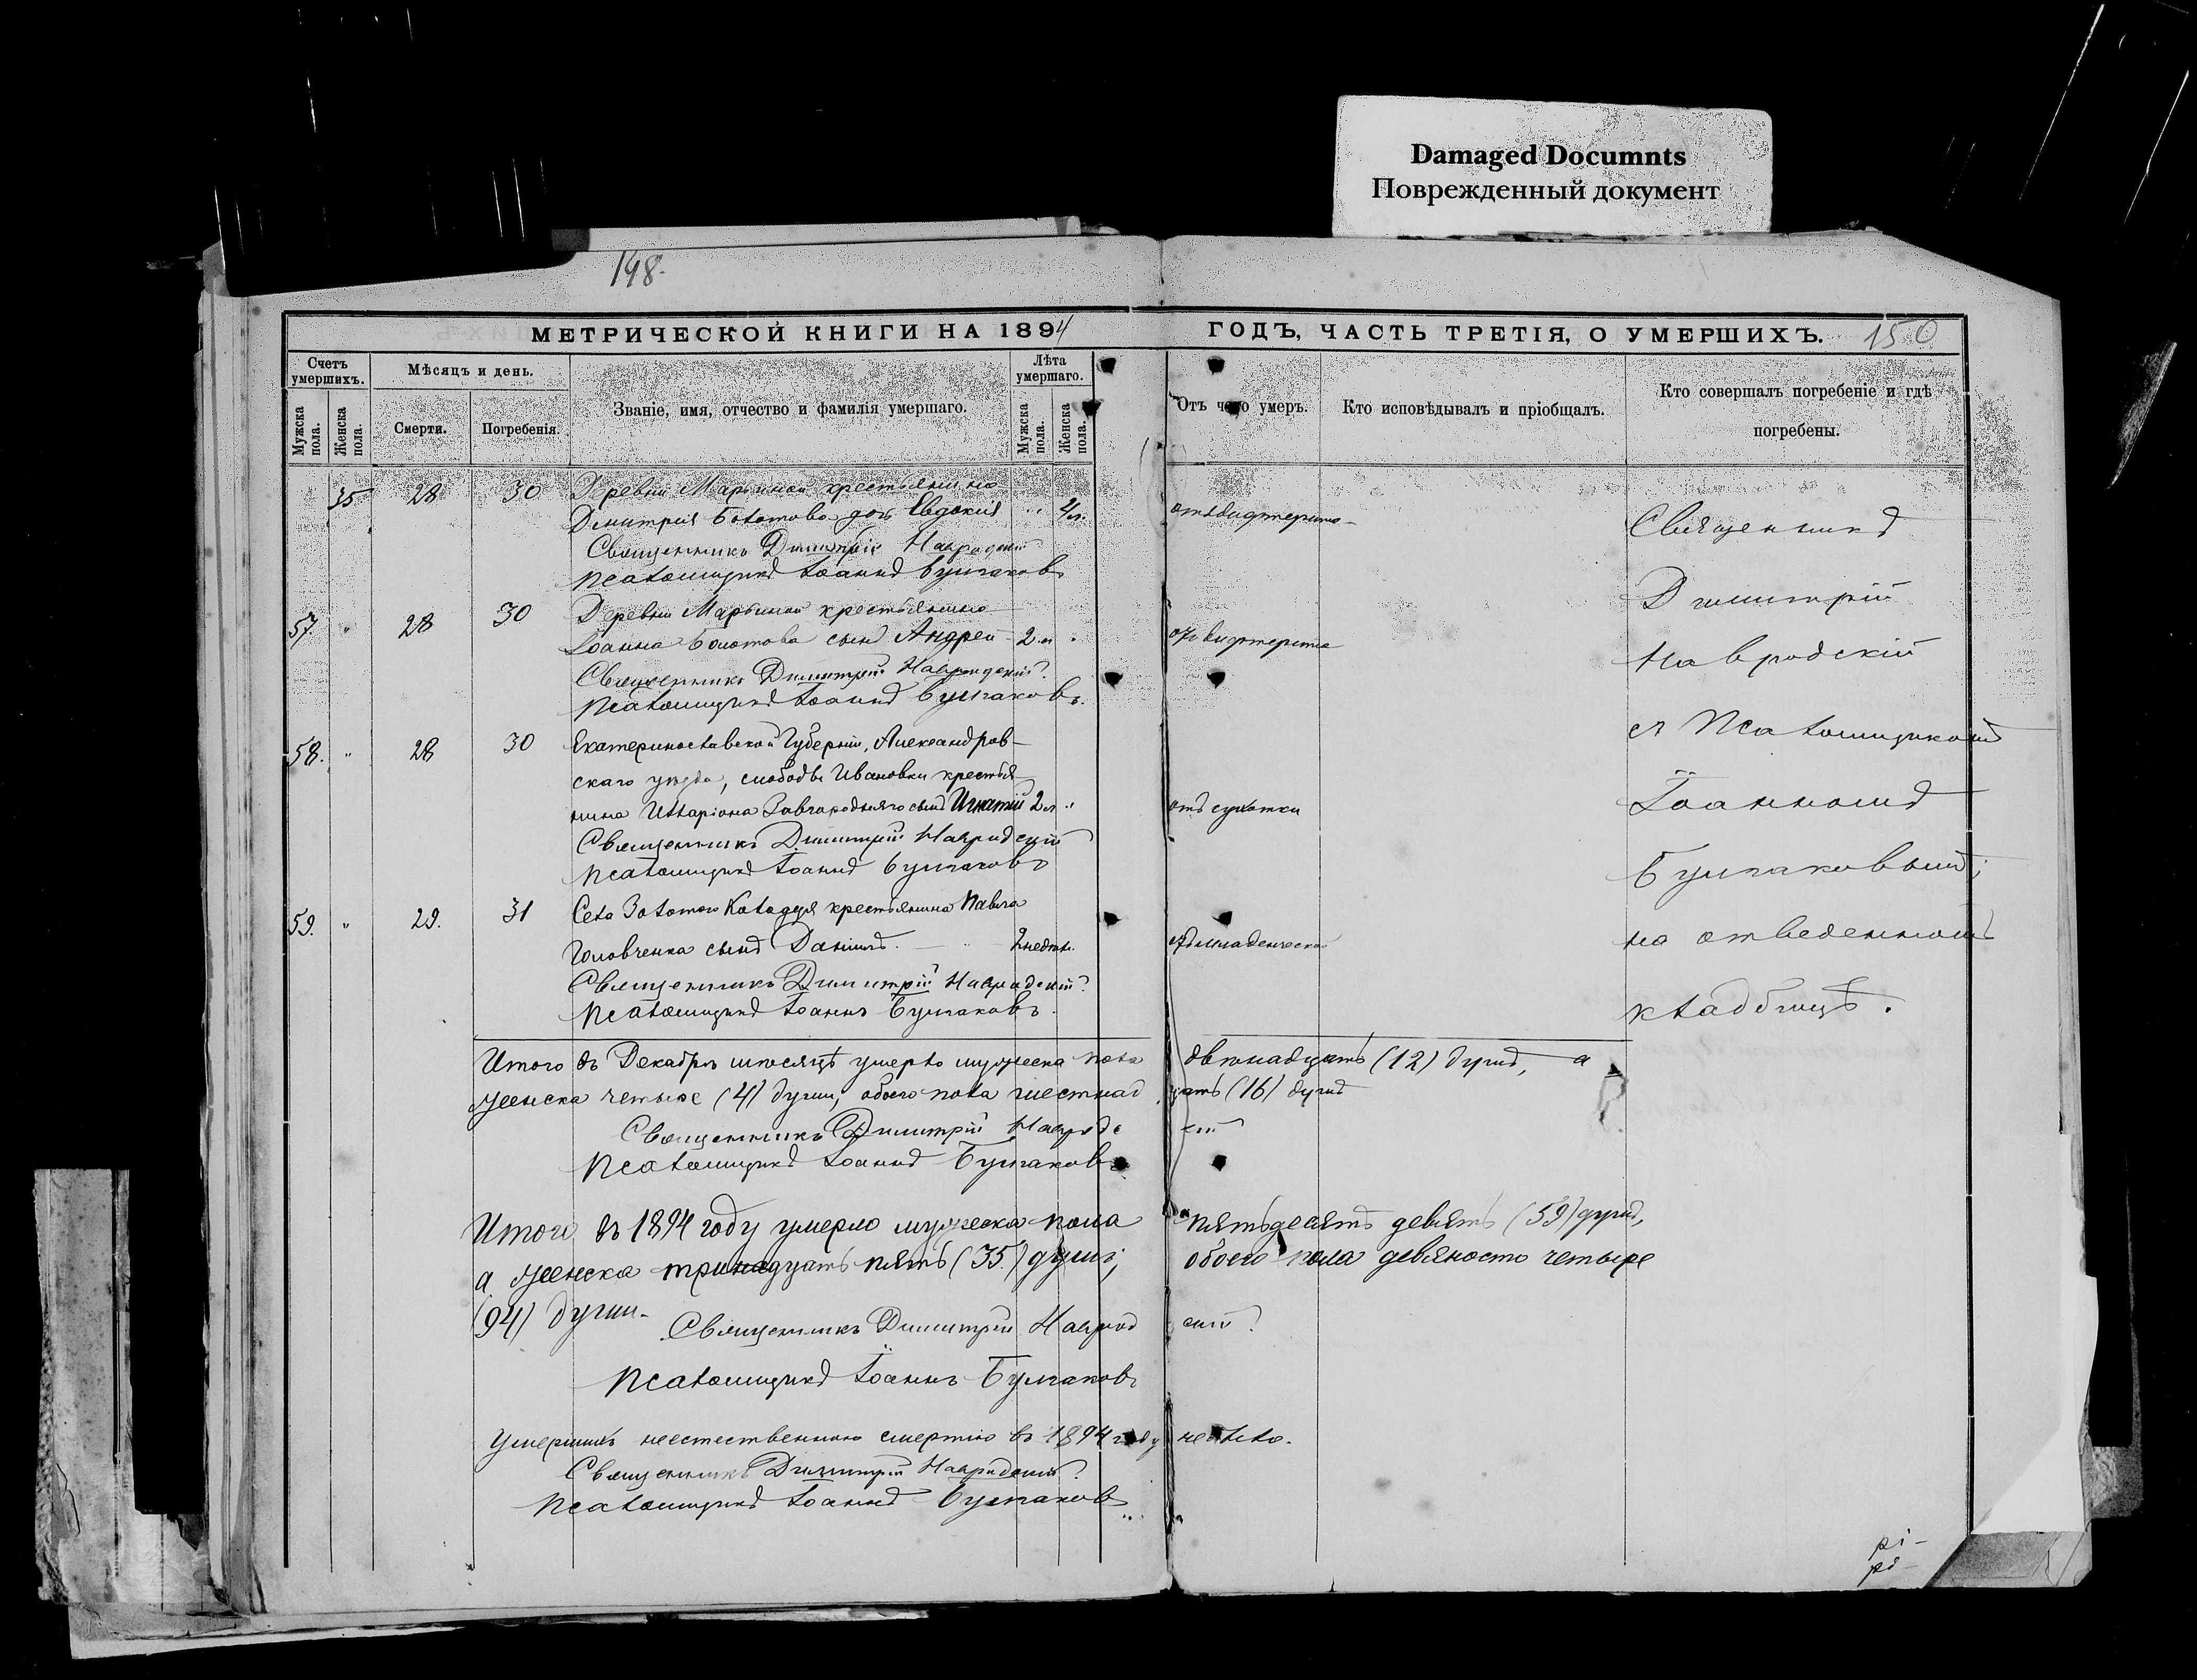 Damaged Documnts
Поврежденный документ
148.
МЕТРИЧЕСКОЙ КНИГИ НА 1894
ГОДЪ, ЧАСТЬ ТРЕТІЯ, О УМЕРШИХЪ. 150
Счетъ умершихъ.
Мужска пола.
Женска пола.
Мѣсяцъ и день.
Смерти.
Погребенія.
Званіе, имя, отчество и фамилія умершаго.
Лѣта умершаго.
Мужска пола.
Женска пола.
Отъ чего умеръ.
Кто исповѣдывалъ и пріобщалъ.
Кто совершалъ погребеніе и гдѣ
погребены.
35 28 30 Деревни Марьиной крестьянина
Димитрія Болотова дочь Евдокія " 4 л. отъ дифтерита
Священникъ Димитрій Навродскій
Псаломщикъ Іоаннъ Булгаковъ
57. " 28 30 Деревни Марьиной крестьянина
Іоанна Болотова сынъ Андрей 2 л " отъ дифтерита
Священникъ Димитрій Навродскій
Псаломщикъ Іоаннъ Булгаковъ.
58. " 28 30 Екатеринославской Губерніи, Александров-
скаго уѣзда, слободы Ивановки крестья
нина Илларіона Завгородняго сынъ Игнатій 2 л " отъ сухотки
Священникъ Димитрій Навродскій
Псаломщикъ Іоаннъ Булгаковъ
59. " 29. 31 Села Золотого Колодезя крестьянина Павла
Головченка сынъ Даніилъ. 2 недѣл. младенческой
Священникъ Димитрій Навродскій
Псаломщикъ Іоаннъ Булгаковъ.
Священникъ
Димитрій
Навродскій
съ Псаломщикомъ
Іоанномъ
Булгаковымъ;
на отведенномъ
кладбищѣ.
Итого въ Декабрѣ мѣсяцѣ умерло мужеска пола двѣнадцать (12) душъ, а
женска четыре (4) души, обоего пола шестнадцать (16) душъ
Священникъ Димитрій Навродскій
Псаломщикъ Іоаннъ Булгаковъ
Итого въ 1894 году умерло мужеска пола пятьдесятъ девять (59) душъ,
а женска тринадцать пять (35.) душъ; обоего пола девяносто четыре
(94) души.
Священникъ Димитрій Навродскій
Псаломщикъ Іоаннъ Булгаковъ
Умершихъ неестественною смертію въ 1894 году не было.
Священникъ Димитрій Навродскій
Псаломщикъ Іоаннъ Булгаковъ